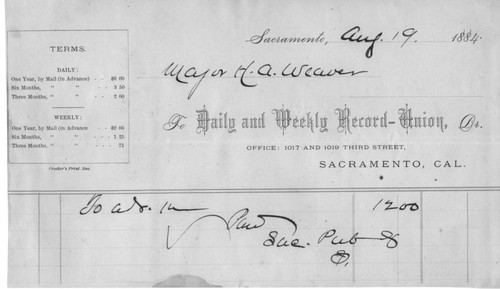 Sacramento, Aug. 19, 1884.
TERMS.
DAILY:
One Year, by Mail (in Advance) . . $6 00
Six Months, " " . . 3 50
Three Months, " " . . 2 00
WEEKLY:
One Year, by Mail (in Advance . . $2 00
Six Months, " " . . 1 25
Three Months, " " . . 75
Crocker's Print, Sac.
Major H. A. Weaver
To Daily and Weekly Record-Union, Dr.
OFFICE: 1017 AND 1019 THIRD STREET,
SACRAMENTO, CAL.
To adv. in 1200
Paid
Sac. Pub